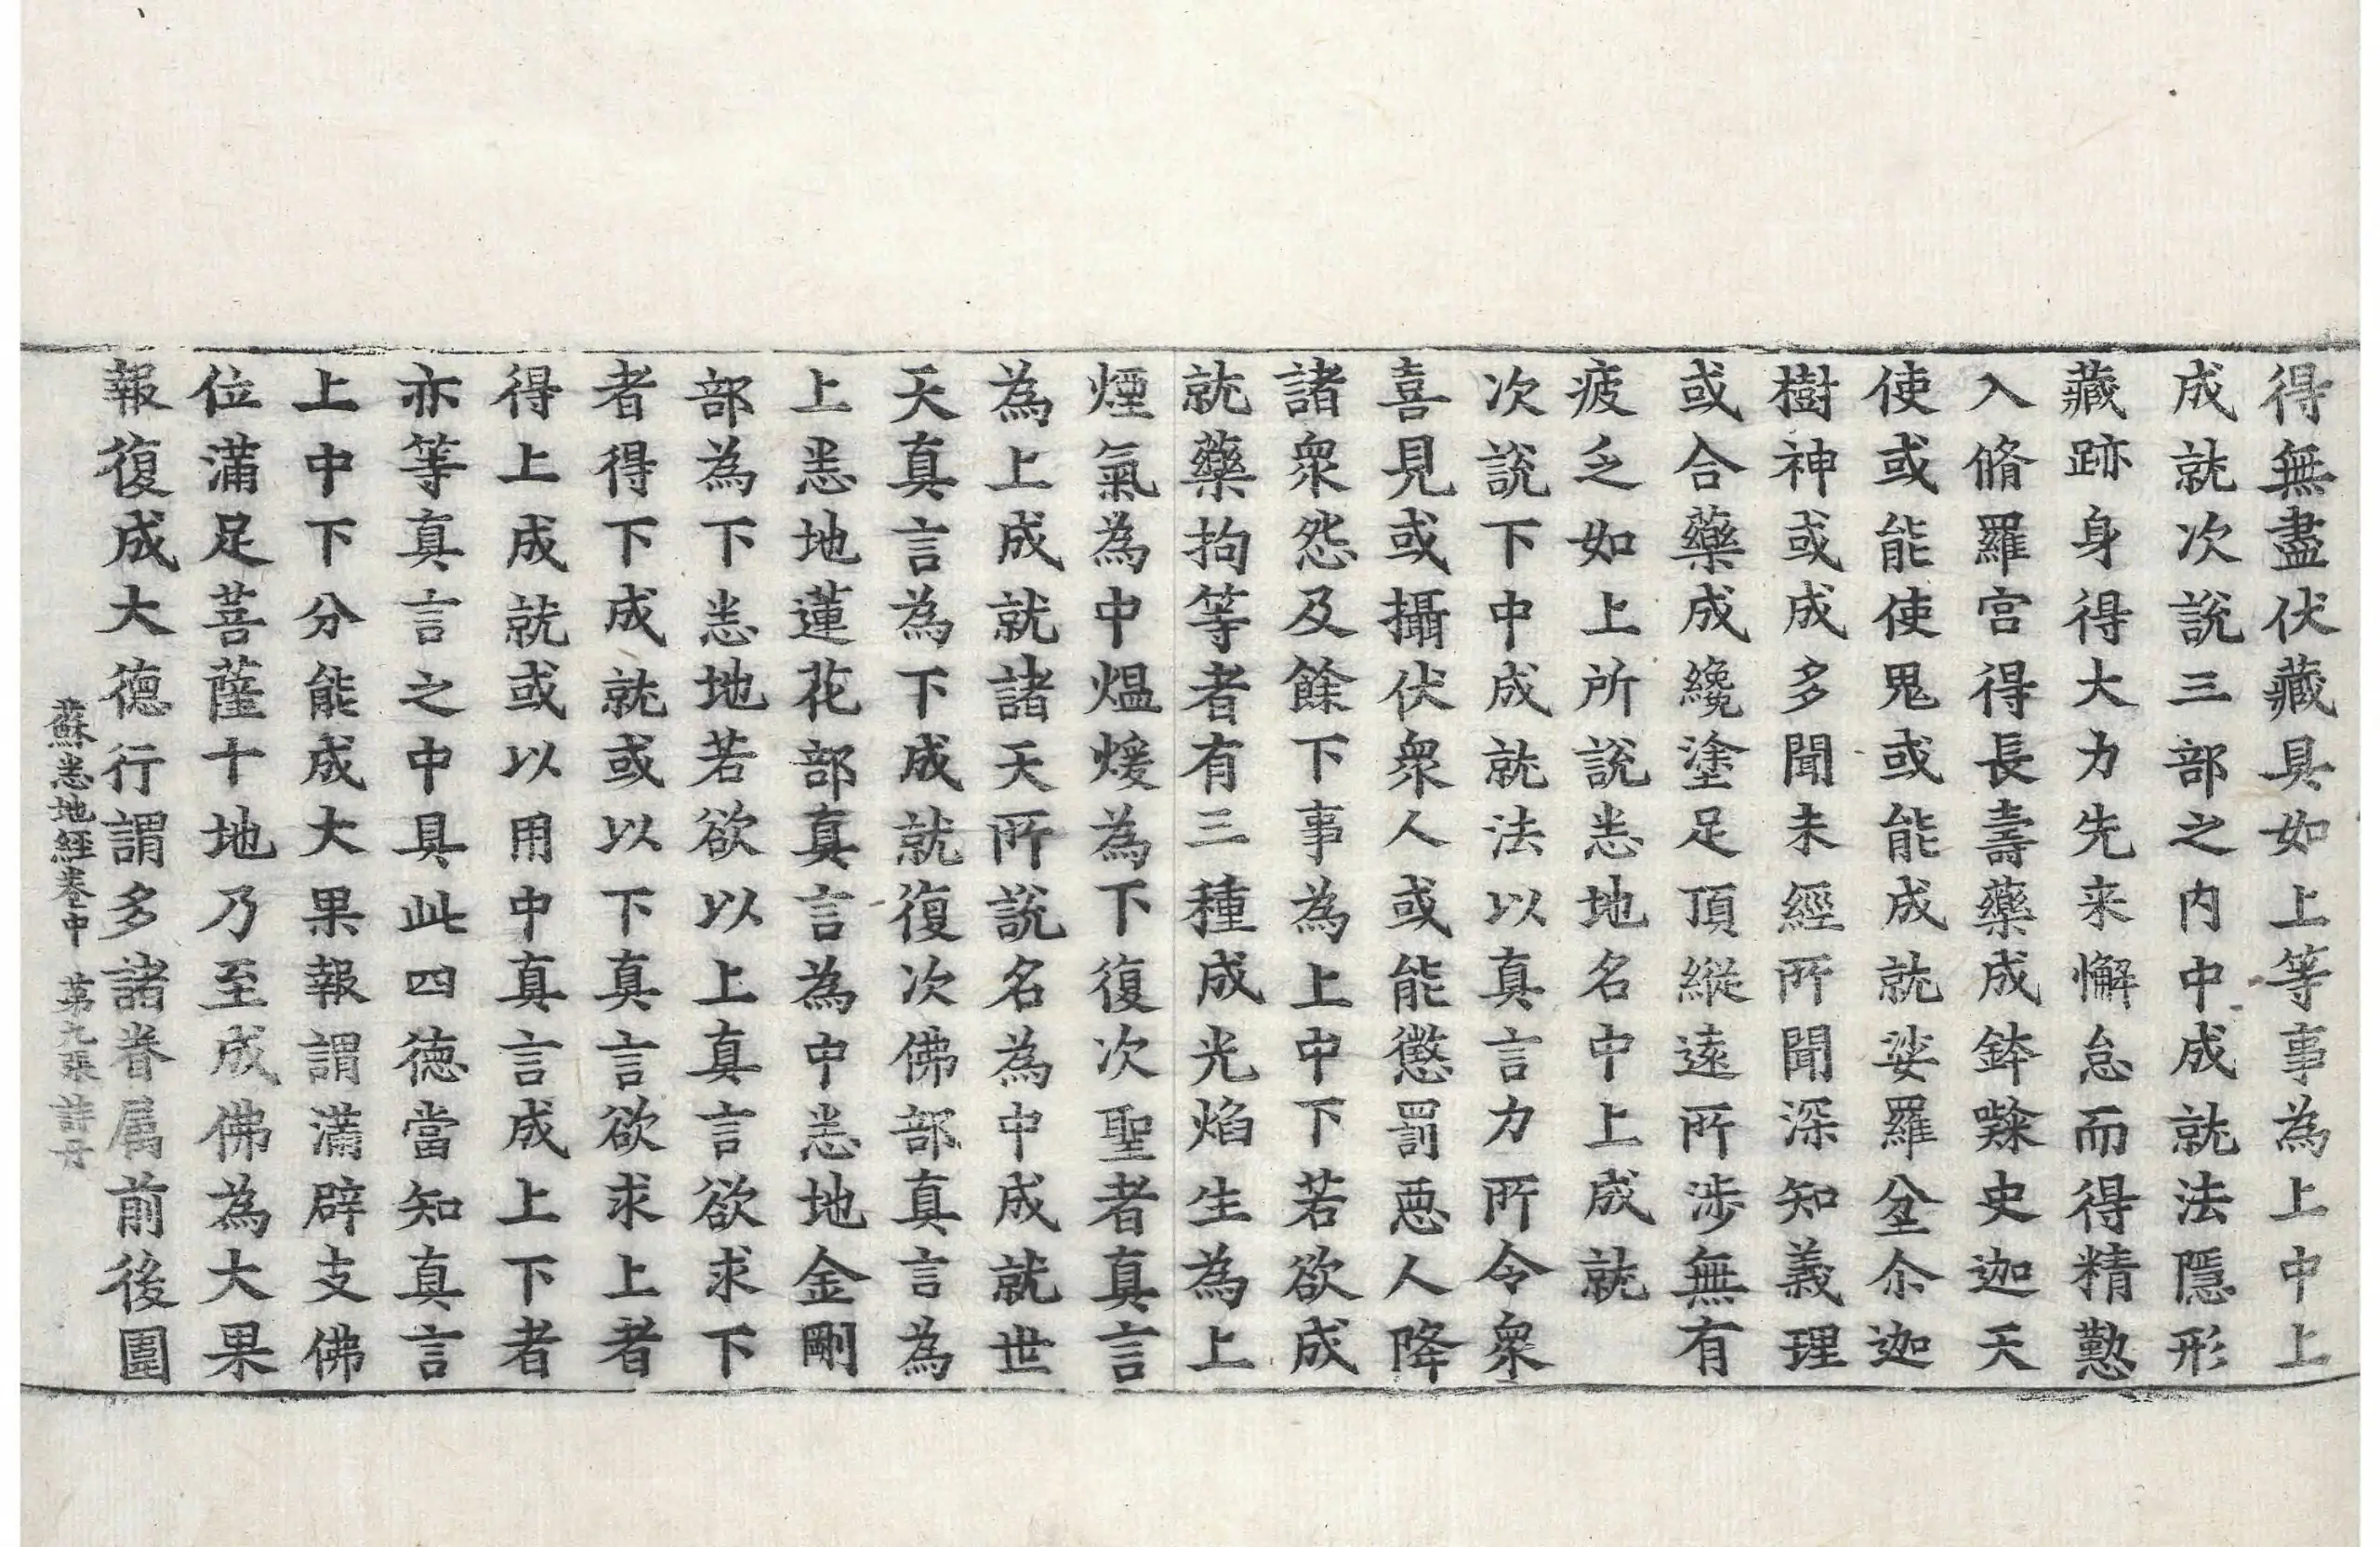 得無盡伏藏具如上等事為上中上
成就次說三部之内中成就法隱形
藏跡身得大力先来懈怠而得精懃
入脩羅宫得長壽藥成鉢𭉨史迦天
使或能使鬼或能成就娑羅坌尒迦
樹神或成多聞未經所聞深知義理
或合藥成纔塗足頂縱遠所涉無有
疲乏如上所說悉地名中上成就
次說下中成就法以真言力所令衆
喜見或攝伏衆人或能懲罰惡人降
諸衆怨及餘下事為上中下若欲成
就藥拘等者有三種成光焰生為上
煙氣為中熅煖為下復次聖者真言
為上成就諸天所說名為中成就世
天真言為下成就復次佛部真言為
上悉地蓮花部真言為中悉地金剛
部為下悉地若欲以上真言欲求下
者得下成就或以下真言欲求上者
得上成就或以用中真言成上下者
亦等真言之中具此四德當知真言
上中下分能成大果報謂滿辟支佛
位滿足菩薩十地乃至成佛為大果
報復成大德行謂多諸眷属前後圍
蘇悉地經卷中　第九張　詩母